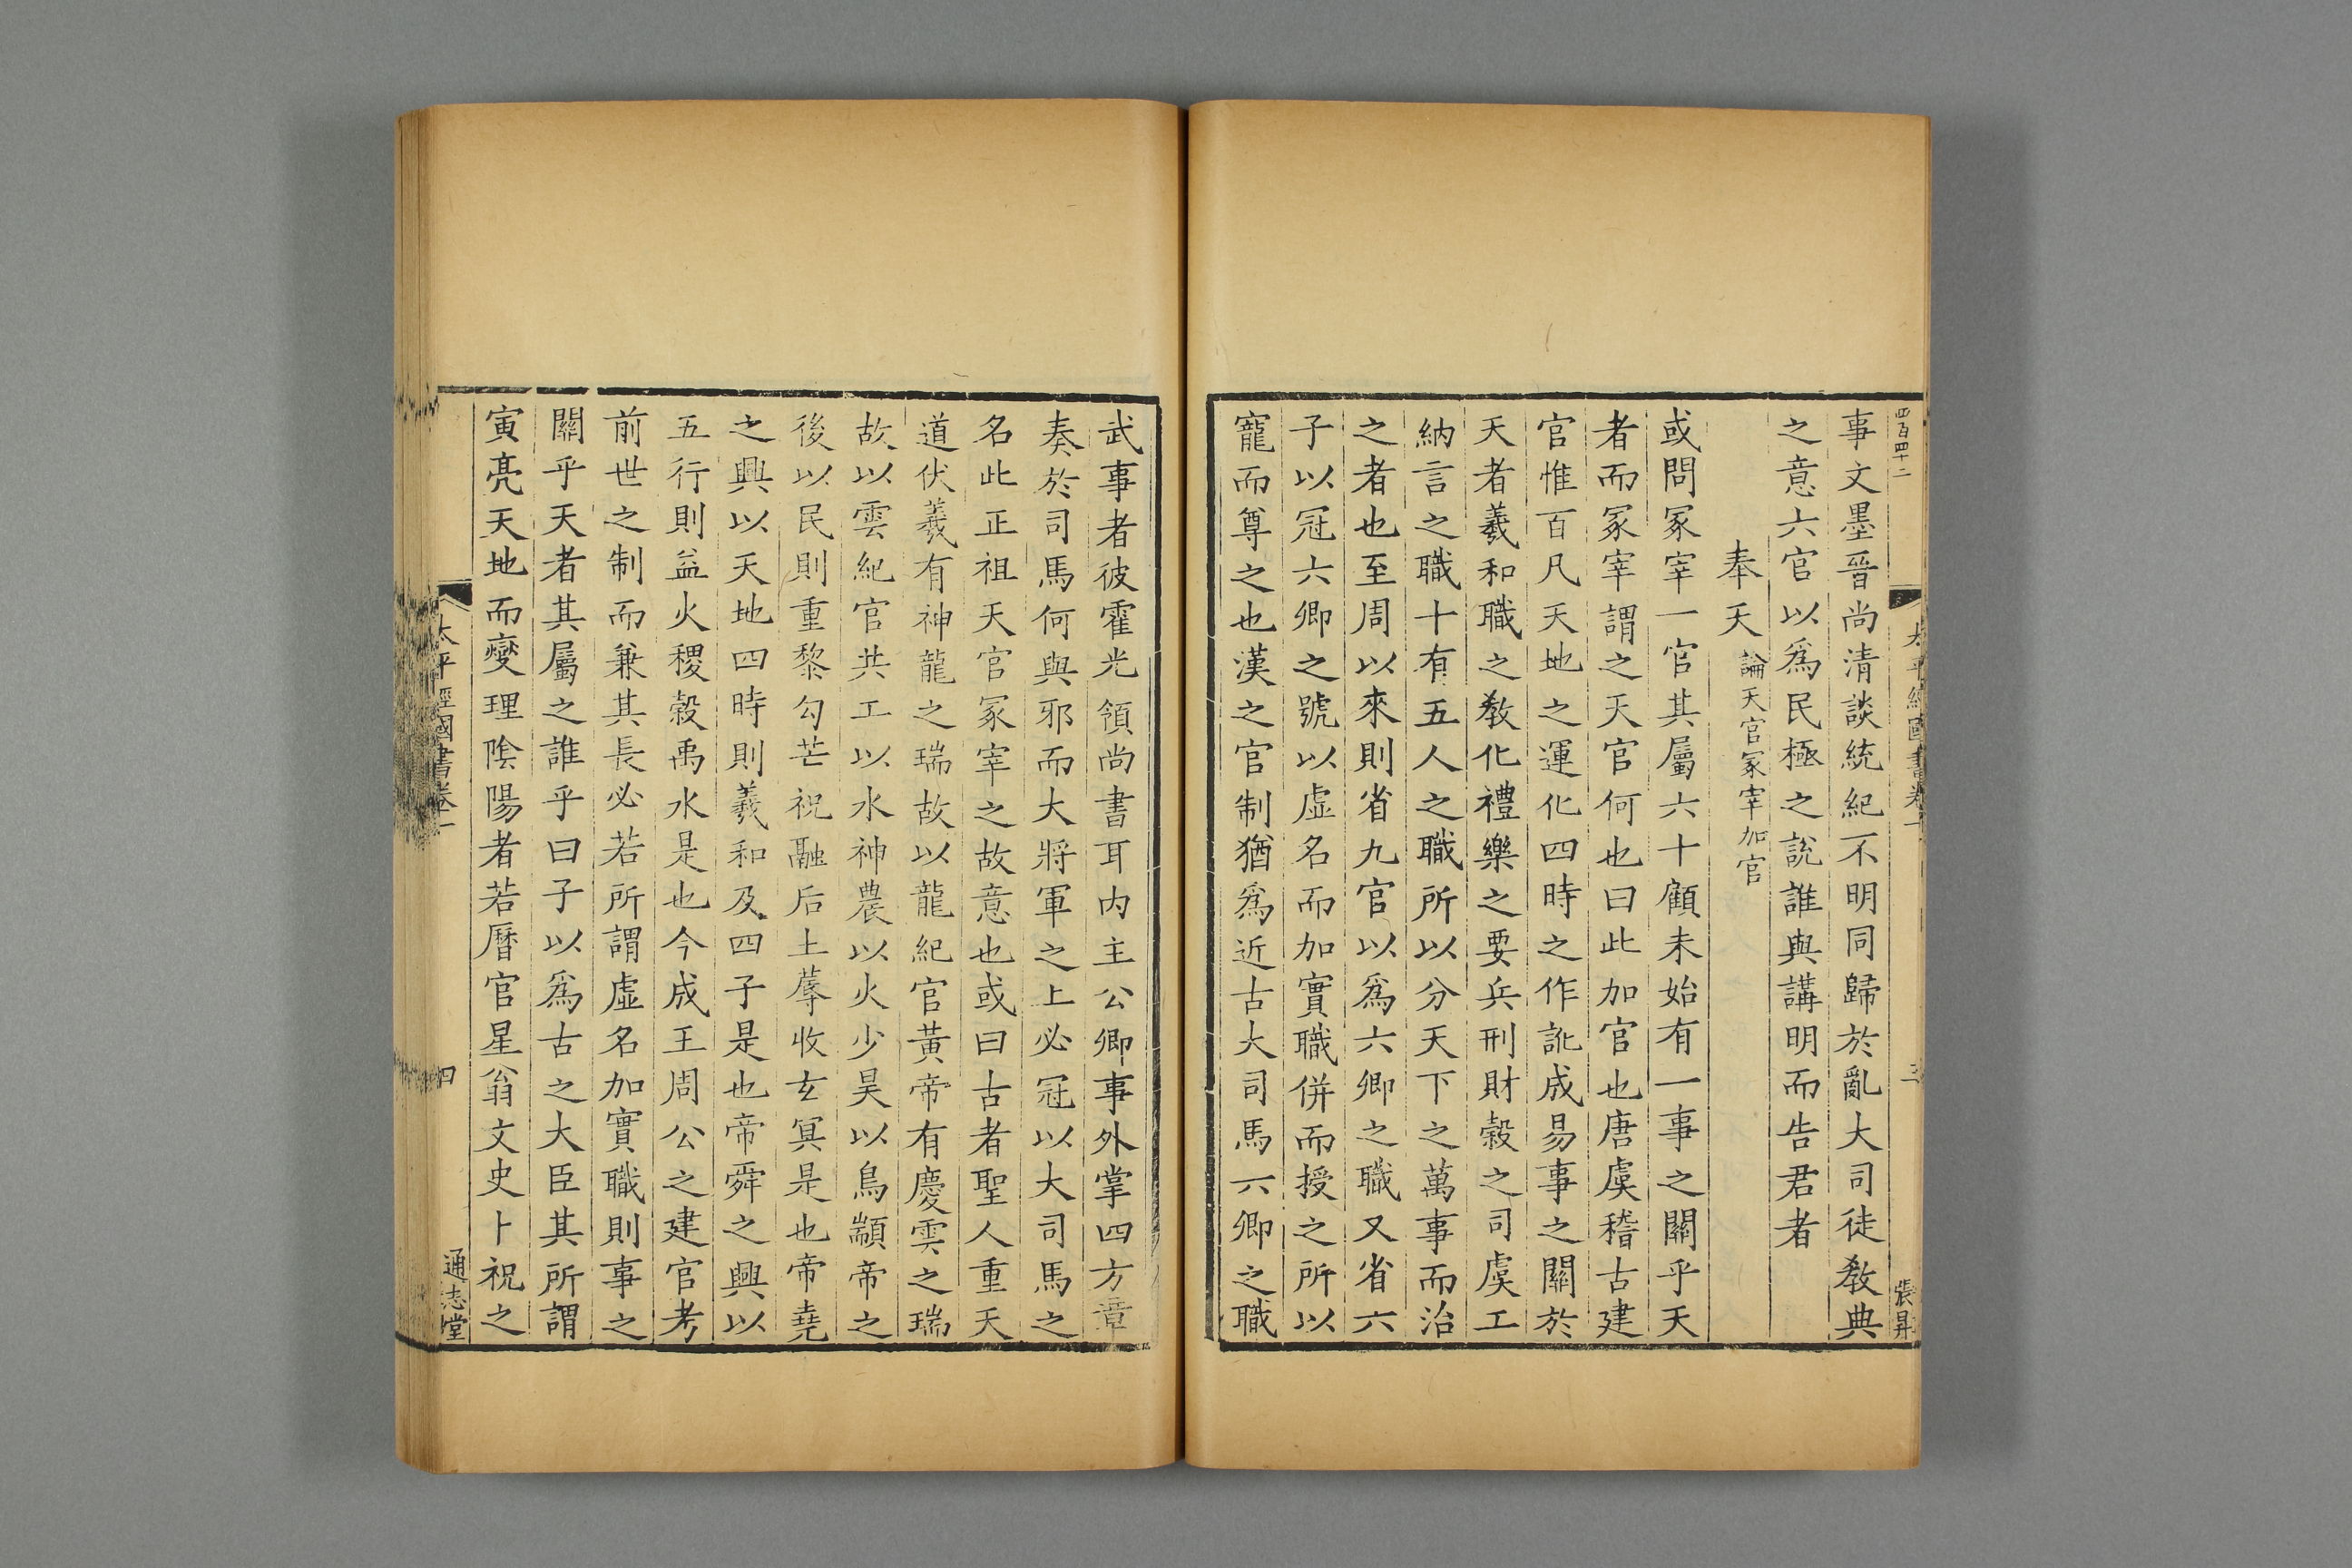 四百四十二
太平經國書卷一
三
張昇
事文墨晉尚清談統紀不明同歸於亂大司徒教典
之意六官以爲民極之說誰與講明而告君者
奉天 論天官冢宰加官
或問冢宰一官其屬六十顧未始有一事之關乎天
者而冢宰謂之天官何也曰此加官也唐虞稽古建
官惟百凡天地之運化四時之作訛成易事之關於
天者羲和職之教化禮樂之要兵刑財穀之司虞工
納言之職十有五人之職所以分天下之萬事而治
之者也至周以來則省九官以爲六卿之職又省六
子以冠六卿之號以虛名而加實職併而授之所以
寵而尊之也漢之官制猶爲近古大司馬六卿之職
武事者彼霍光領尚書耳内主公卿事外掌四方章
奏於司馬何與邪而大將軍之上必冠以大司馬之
名此正祖天官冢宰之故意也或曰古者聖人重天
道伏羲有神龍之瑞故以龍紀官黃帝有慶雲之瑞
故以雲紀官共工以水神農以火少昊以鳥顓帝之
後以民則重黎勾芒祝融后土蓐收玄冥是也帝堯
之興以天地四時則羲和及四子是也帝舜之興以
五行則益火稷穀禹水是也今成王周公之建官考
前世之制而兼其長必若所謂虛名加實職則事之
關乎天者其屬之誰乎曰子以爲古之大臣其所謂
寅亮天地而燮理陰陽者若曆官星翁文史卜祝之
太平經國書卷一
四
通志堂